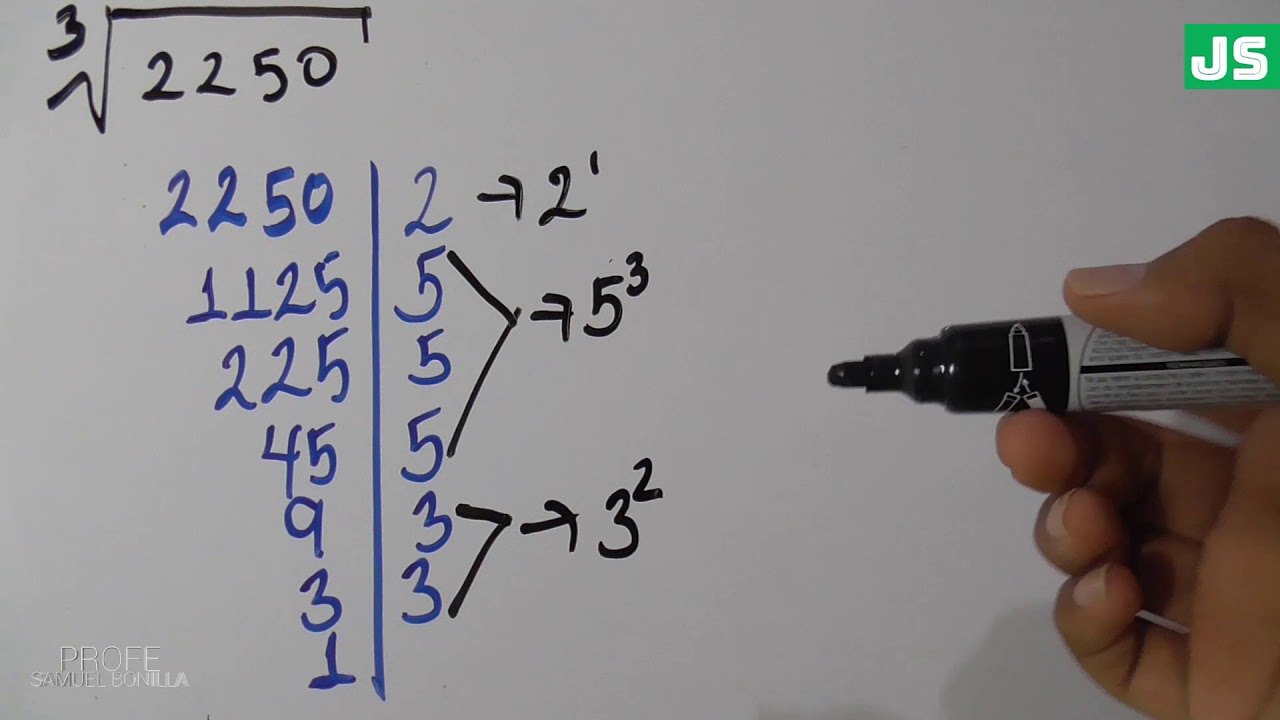 ∛2250
2250 | 2 → 2¹
1125 | 5 → 5³
225 | 5
45 | 5
9 | 3 → 3²
3 | 3
1
JS
PROFE
SAMUEL BONILLA